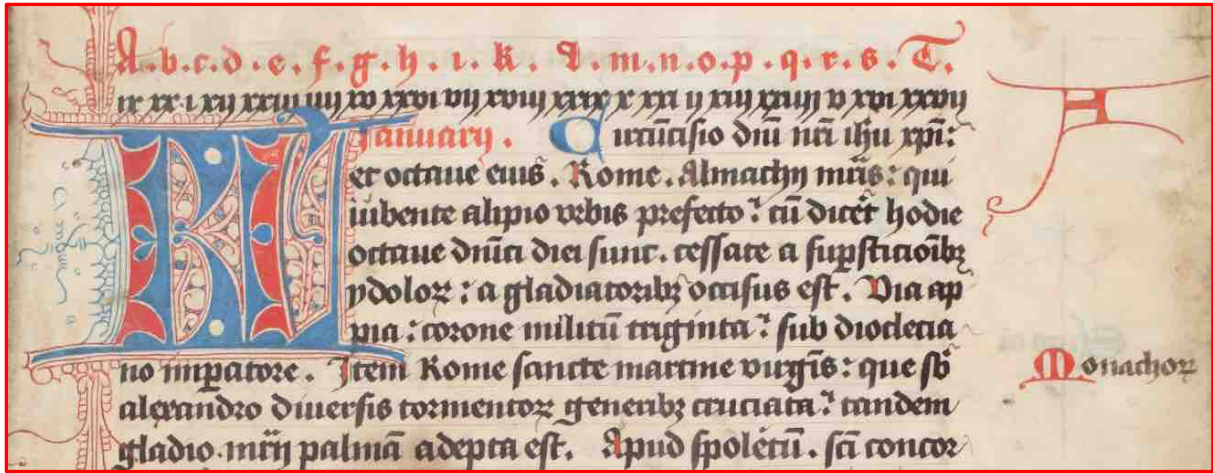 A.b.c.d.e.f.g.h.i.k.l.m.n.o.p.q.r.s.T.
ix xx i xij xxiij iiij xv xxvi vij xviij xxix x xxi ij xiij xxiiij v xvi xxvij
A
KL Januarij. Circūcisio dnī nrī ihū xpī:
et octaue eius. Rome. Almachij mr̄is: qui
iubente alipio vrbis prefecto: cū dicēt hodie
octaue dnīci diei sunt. cessate a sup̱sticiōibꝫ
ydoloꝝ: a gladiatoribꝫ occisus est. Via ap
pia: corone militū triginta: sub dioclecia
no imp̱atore. Item Rome sancte martine virgīs: que sb̄
Monachoꝝ
alexandro diuersis tormentoꝝ generibꝫ cruciata: tandem
gladio mr̄ij palmā adepta est. Apud spoletū. scī concor